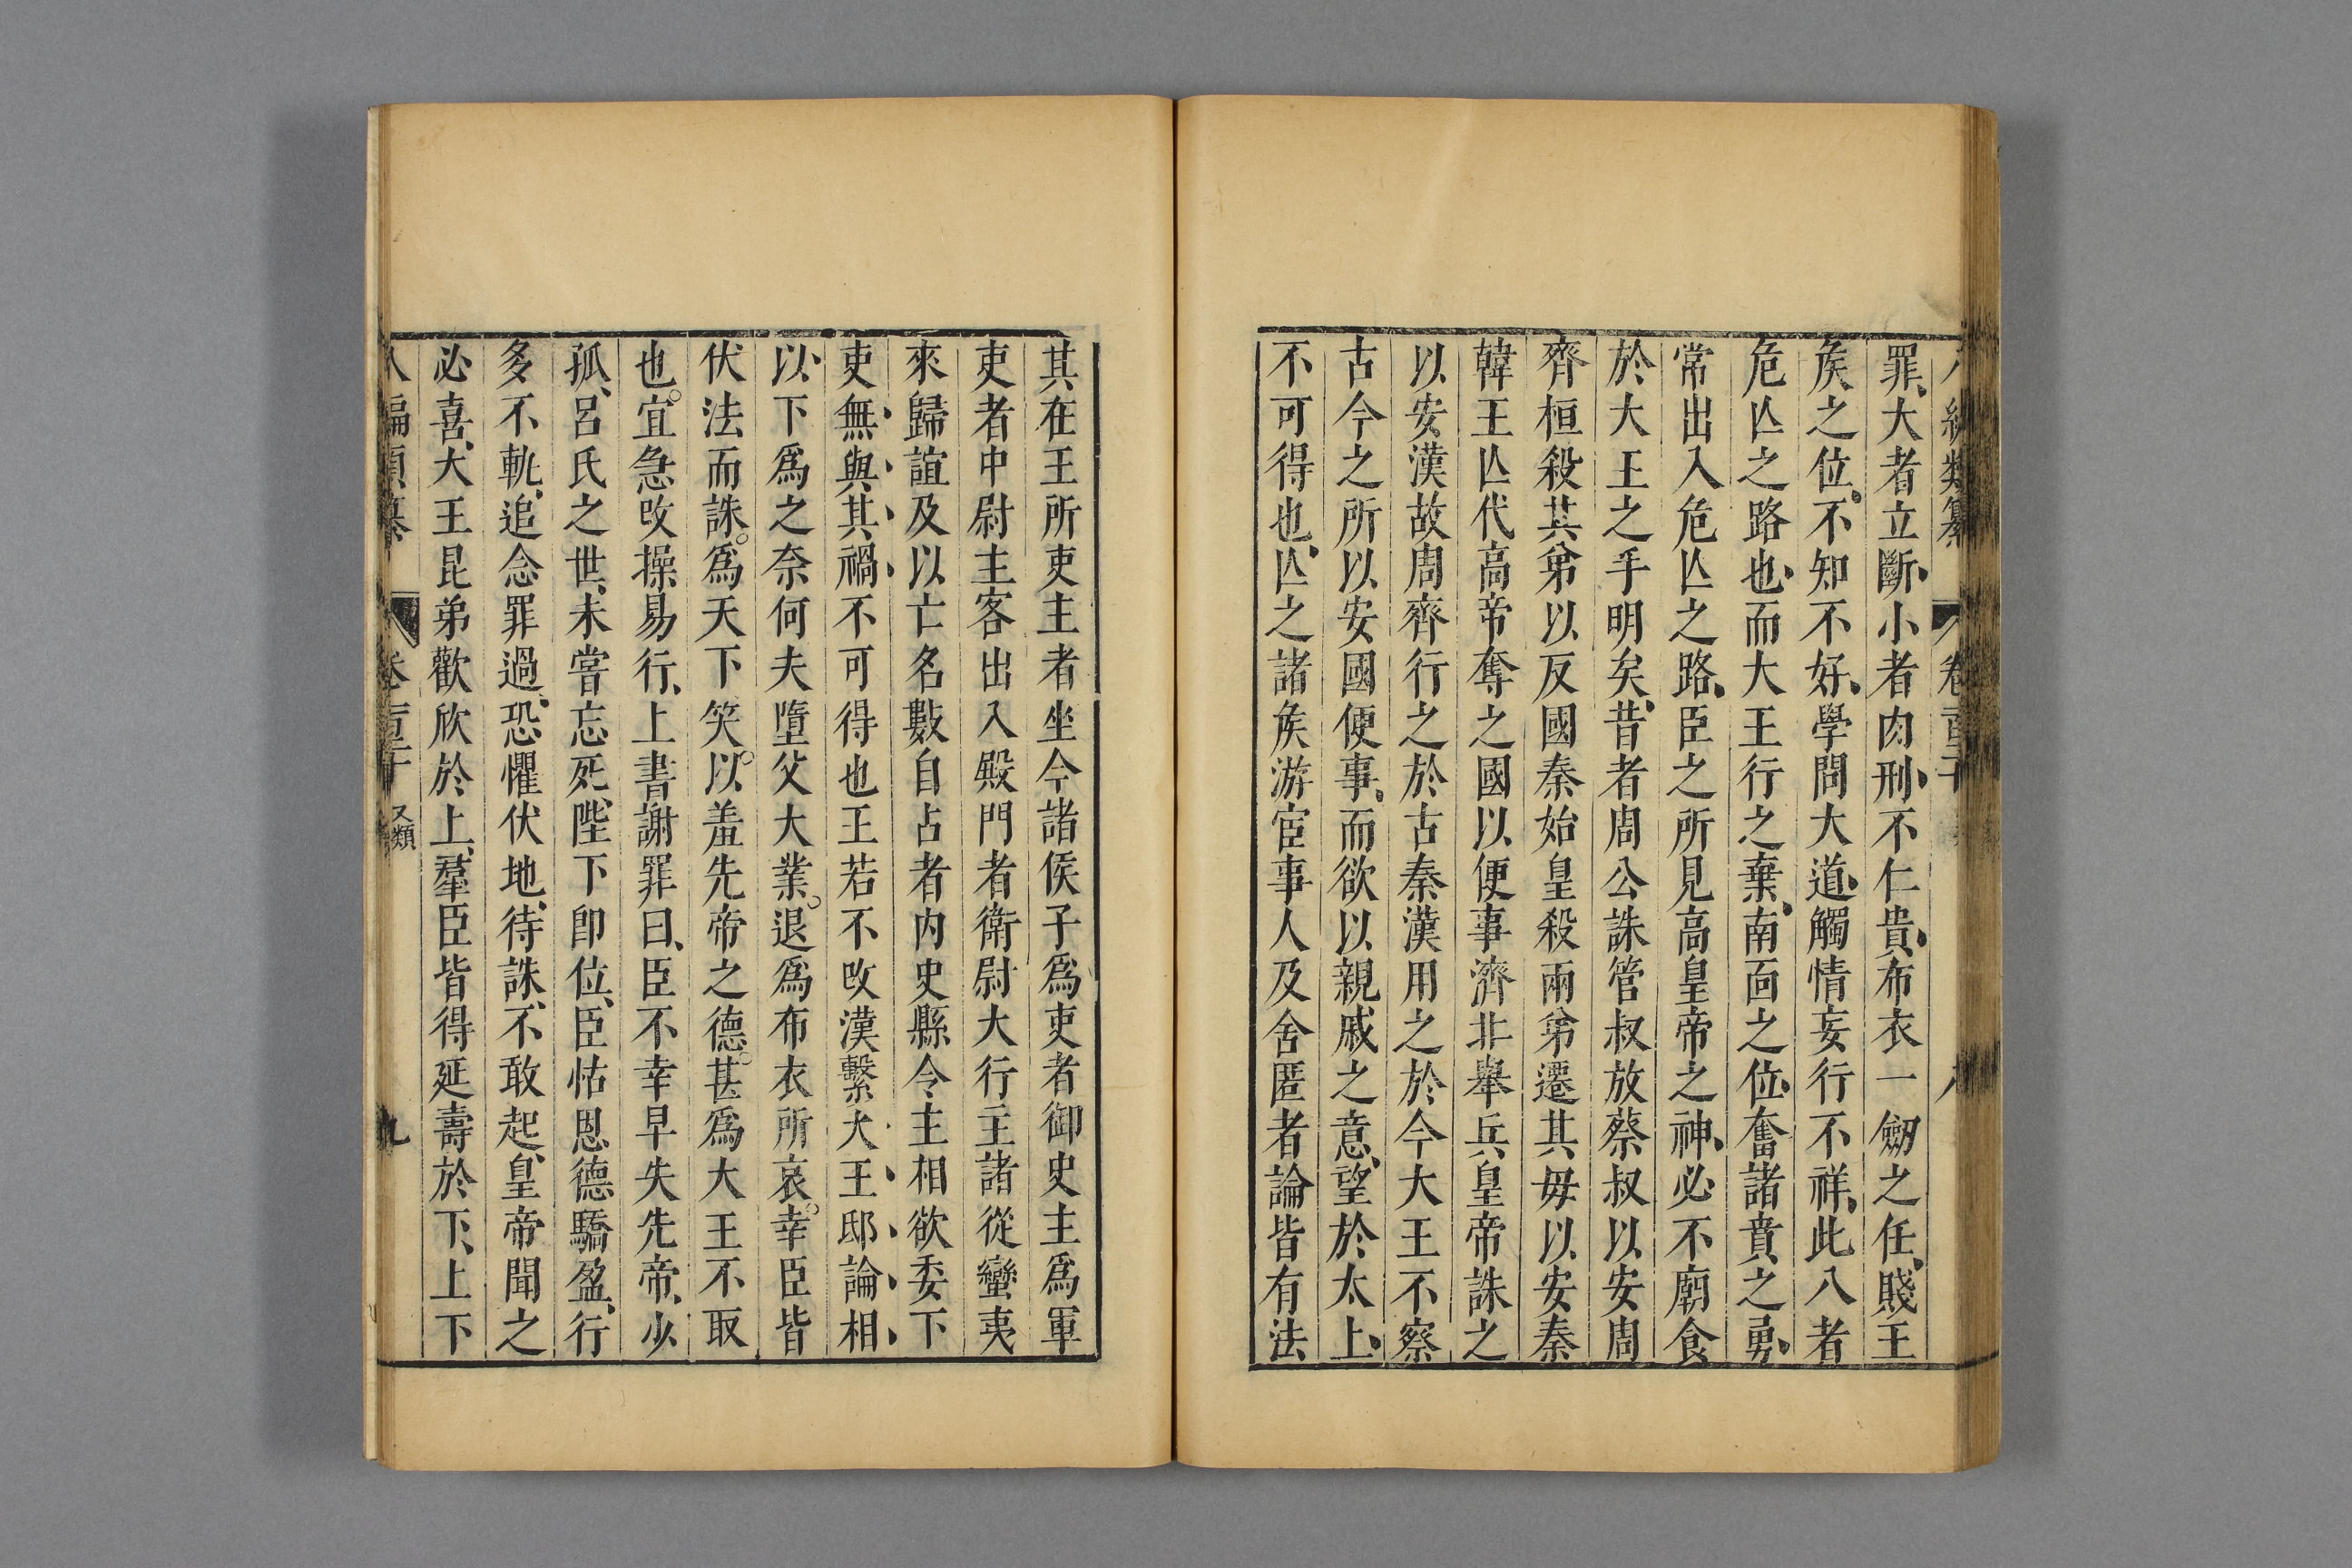 編類纂 卷
罪、大者立斷、小者肉刑、不仁貴、布衣一劒之任、賤王
矦之位、不知不好、學問大道、觸情妄行、不祥、此八者
危亾之路也、而大王行之、棄南面之位、奮諸賁之勇、
常出入危亾之路、臣之所見高皇帝之神、必不廟食
於大王之手明矣、昔者周公誅管叔放蔡叔以安周
齊桓殺其弟以反國秦始皇殺兩弟遷其毋以安秦
韓王亾代高帝奪之國以便事濟北舉兵皇帝誅之
以安漢故周齊行之於古秦漢用之於今大王不察
古今之所以安國便事、而欲以親戚之意、望於太上、
不可得也、亾之諸矦游宦事人及舍匿者論皆有法
其在王所吏主者坐今諸侯子爲吏者御史主爲軍
吏者中尉主客出入殿門者衛尉大行主諸從蠻夷
來歸誼及以亡名數自占者內史縣令主相欲委下
吏無與其禍不可得也王若不改漢繫大王邸論相
以下爲之奈何夫墮父大業。退爲布衣所哀。幸臣皆
伏法而誅。爲天下笑。以羞先帝之德。甚爲大王不取
也。宜急改操易行、上書謝罪曰、臣不幸早失先帝、少
孤、呂氏之世、未嘗忘死、陛下卽位、臣怙恩德驕盈、行
多不軌、追念罪過、恐懼伏地、待誅、不敢起、皇帝聞之
必喜、大王昆弟歡欣於上、羣臣皆得延壽於下、上下
八編類纂 卷 九